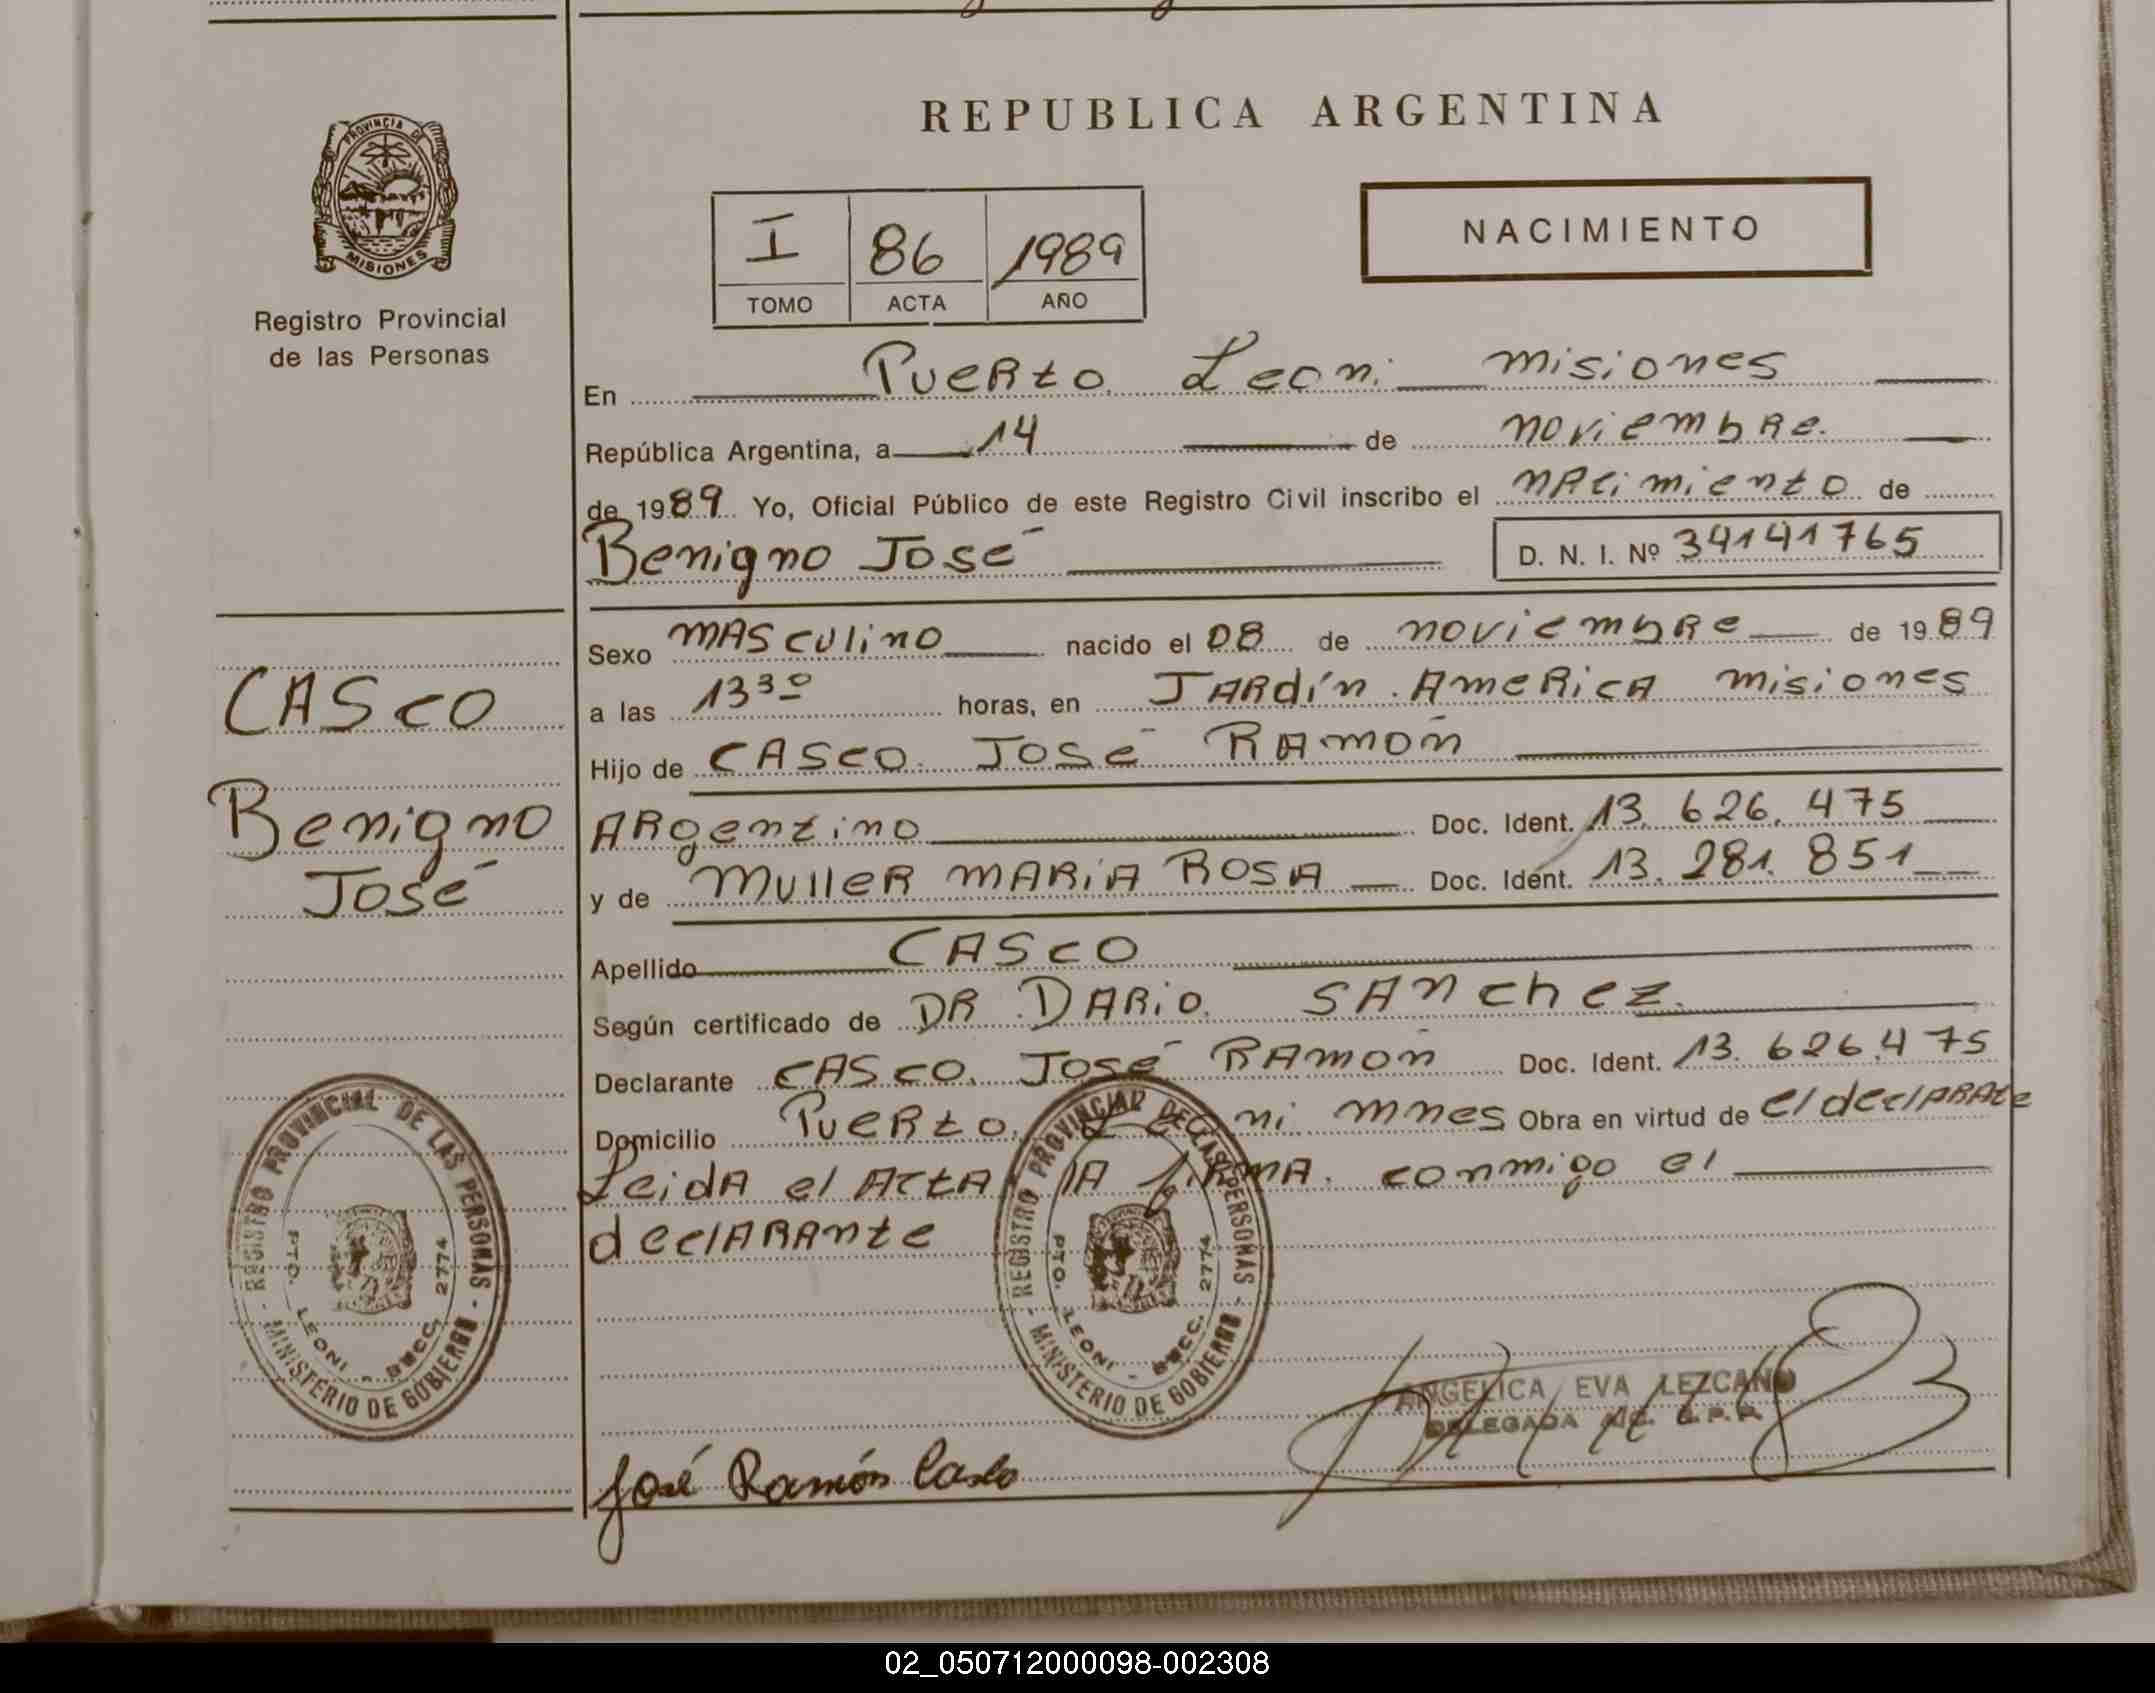 PROVINCIA DE
MISIONES
Registro Provincial
de las Personas
CASCO
Benigno
José
REGISTRO PROVINCIAL DE LAS PERSONAS -
MINISTERIO DE GOBIERNO -
PTO. LEONI - SECC. 2774
REPUBLICA ARGENTINA
I 86 1989
TOMO ACTA AÑO
NACIMIENTO
En Puerto Leoni misiones
República Argentina, a 14 de noviembre.
de 1989 Yo, Oficial Público de este Registro Civil inscribo el nacimiento de
Benigno José D. N. I. Nº 34141765
Sexo masculino nacido el 08 de noviembre de 1989
a las 13 30 horas, en Jardín America misiones
Hijo de CASCO José Ramón
Argentino Doc. Ident. 13.626.475
y de Muller MARIA ROSA Doc. Ident. 13.281.851
Apellido CASCO
Según certificado de DR DARIO SANchez.
Declarante CASCO José Ramón Doc. Ident. 13.626.475
Domicilio Puerto Leoni mnes Obra en virtud de el declarate
Leida el Acta la firma conmigo el
declarante
REGISTRO PROVINCIAL DE LAS PERSONAS -
MINISTERIO DE GOBIERNO -
PTO. LEONI - SECC. 2774
ANGELICA EVA LEZCANO
DELEGADA A/C. R.P.P.
José Ramón Casco
02_050712000098-002308